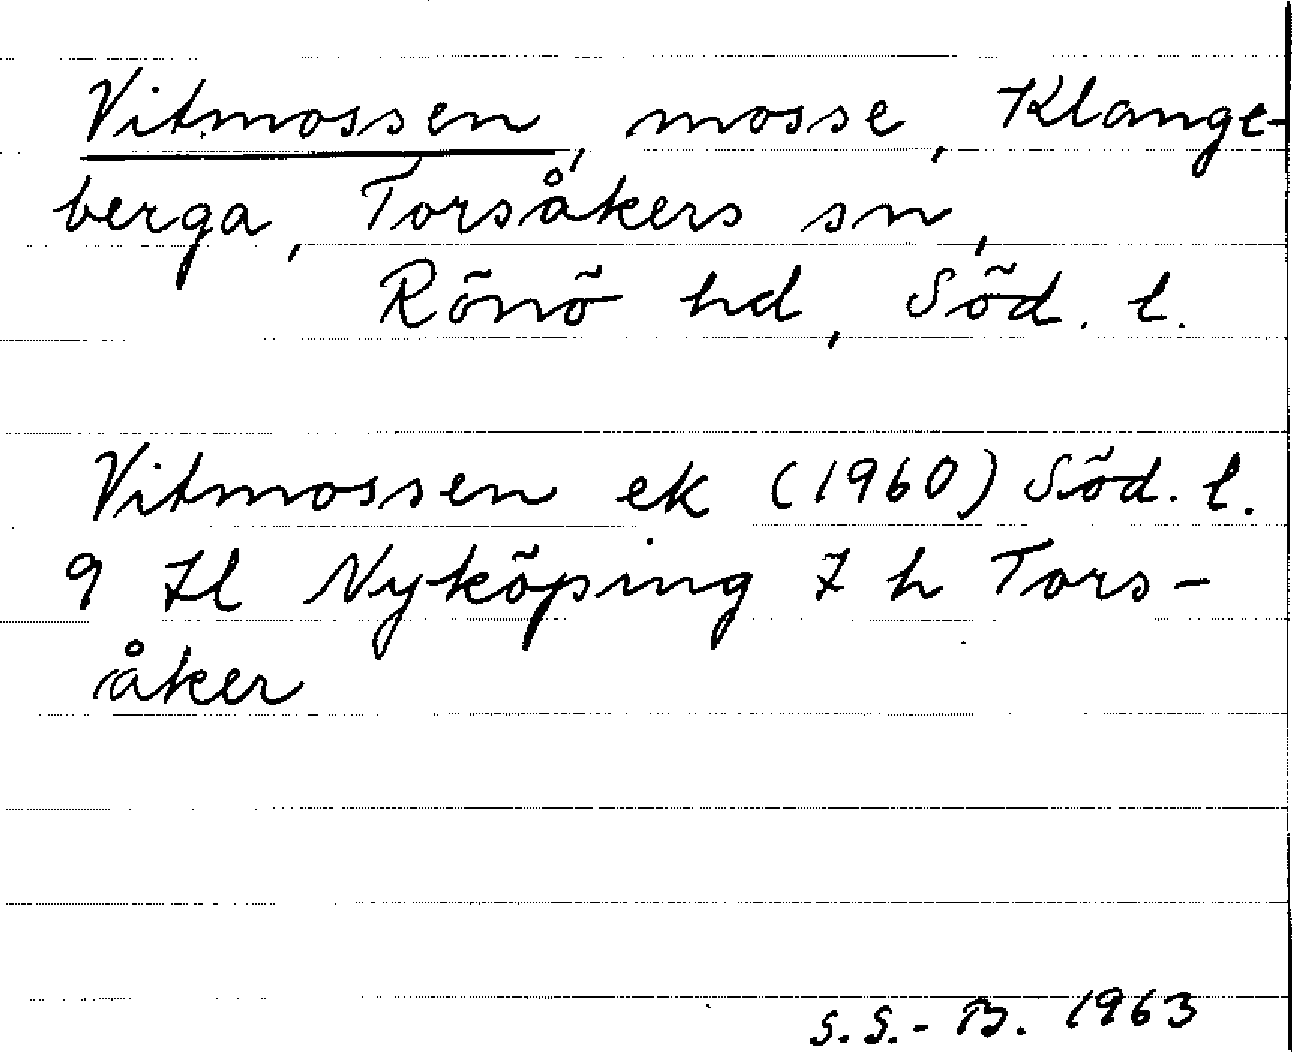 Vitmossen, mosse, Klange-
berga, Torsåkers sn,
Rönö hd, Söd. l.
Vitmossen ek (1960) Söd. l.
9 Il Nyköping 7 h Tors-
åker
S.S.-B. 1963